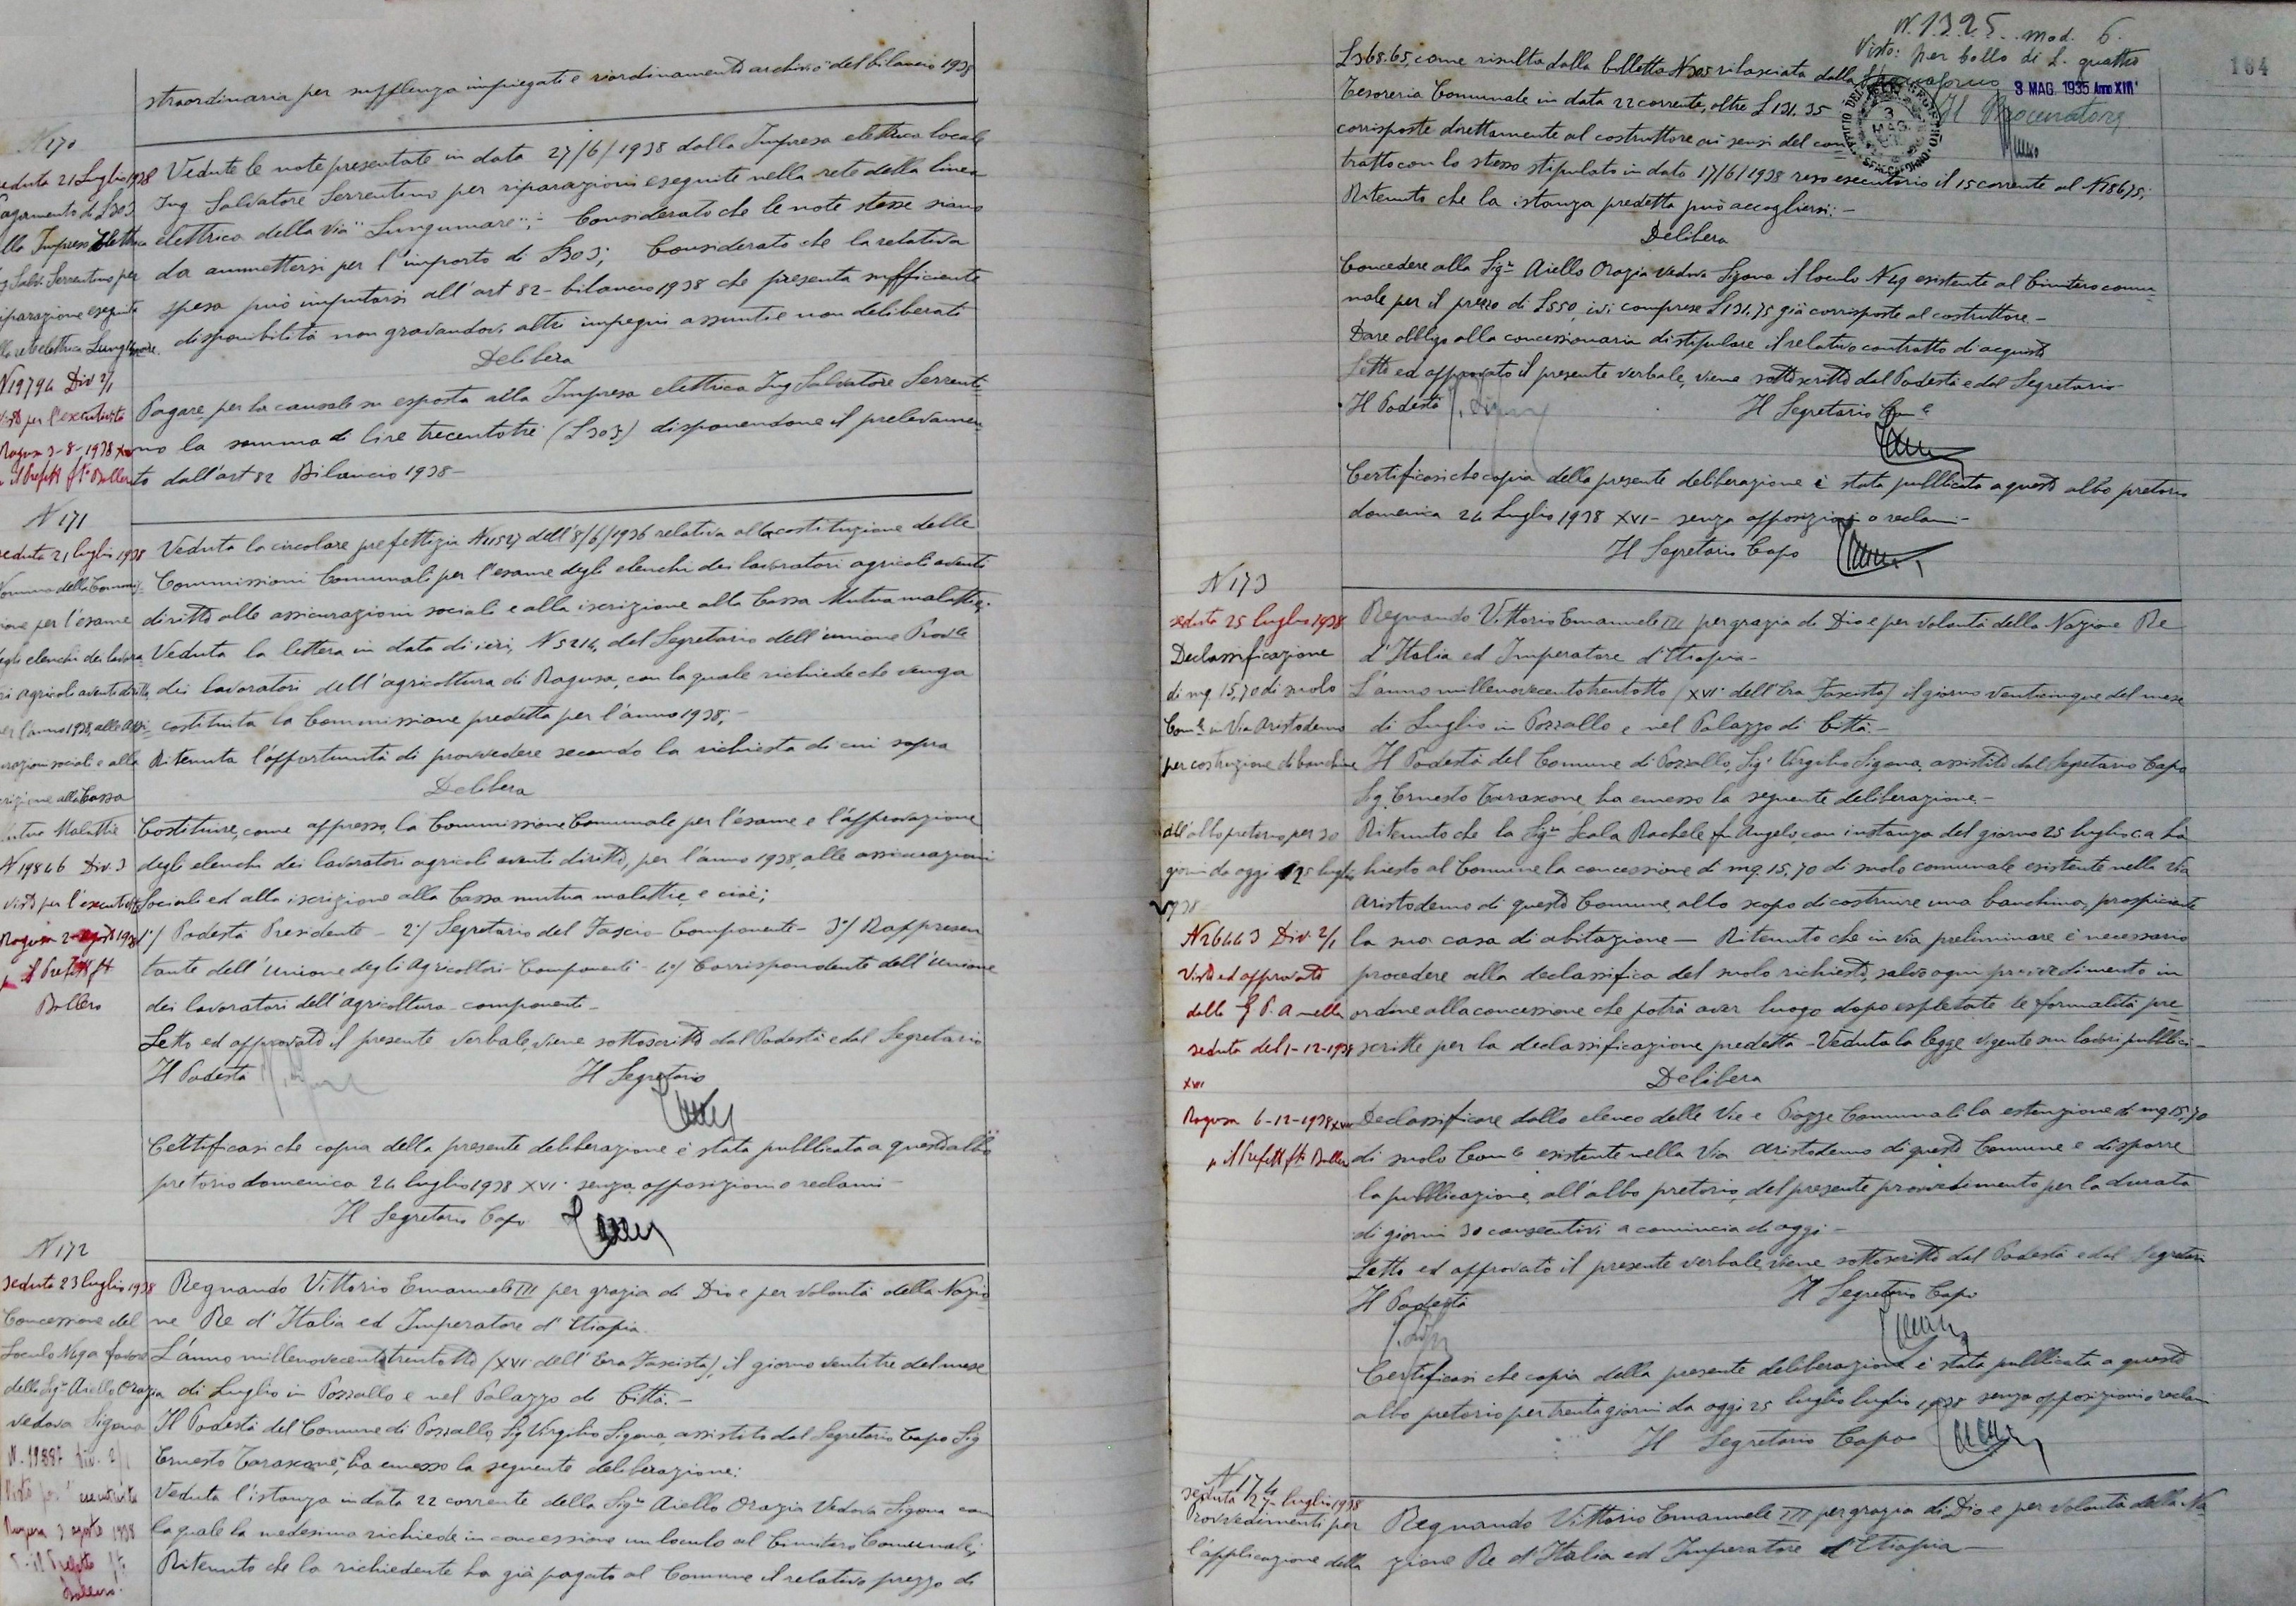 straordinaria per supplenza impiegati e riordinamento archivio" del bilancio 1938
N 170
seduta 21 Luglio 1938
pagamento di L303
alla Impresa Elettrica
Ing Salv. Serrentino per
riparazione eseguite
alla rete elettrica Lungomare
N19794 Div 2/1
Visto per l'esecutività
Ragusa 3-8-1938 XVI
p il Prefetto fto Ballero
Vedute le note presentate in data 27/6/1938 dalla Impresa elettrica locale
Ing Salvatore Serrentino per riparazioni eseguite nella rete della linea
elettrica della via "Lungomare"; Considerato che le note stesse siano
da ammettersi per l'importo di L303; Considerato che la relativa
spesa può imputarsi all'art 82 - bilancio 1938 che presenta sufficiente
disponibilità non gravandovi altri impegni assunti e non deliberati
Delibera
Pagare, per la causale su esposta alla Impresa elettrica Ing Salvatore Serrenti
no la somma di lire trecentotre (L303) disponendone il prelevamen
to dall'art 82 Bilancio 1938 -
N 171
seduta 21 luglio 1938
Nomina della Commis
sione per l'esame
degli elenchi dei lavora
tori agricoli aventi diritto,
per l'anno 1938, alle assi
curazioni sociali e alla
iscrizione alla Cassa
Mutua Malattie
N 19846 Div. 3
Visto per l'esecutività
Ragusa 2 agosto 1938
p il Prefetto fto
Ballero
Veduta la circolare prefettizia N11527 dell'8/6/1936 relativa alla costituzione delle
Commissioni Comunali per l'esame degli elenchi dei lavoratori agricoli aventi
diritto alle assicurazioni sociali e alla iscrizione alla Cassa Mutua malattie;
Veduta la lettera in data di ieri, N 5214, del Segretario dell'unione Prov.le
dei lavoratori dell'agricoltura di Ragusa, con la quale richiede che venga
costituita la Commissione predetta per l'anno 1938; -
Ritenuta l'opportunità di provvedere secondo la richiesta di cui sopra
Delibera
Costituire, come appresso, la Commissione Comunale per l'esame e l'approvazione
degli elenchi dei lavoratori agricoli aventi diritto, per l'anno 1938, alle assicurazioni
sociali ed alla iscrizione alla Cassa mutua malattie, e cioè;
1°/ Podestà Presidente - 2°/ Segretario del Fascio - Componente - 3°/ Rappresen
tante dell'Unione degli Agricoltori - Componenti - 4°/ Corrispondente dell'Unione
dei lavoratori dell'agricoltura - componenti -
Letto ed approvato il presente verbale, viene sottoscritto dal Podestà e dal Segretario
Il Podestà Il Segretario
Certificasi che copia della presente deliberazione è stata pubblicata a questo albo
pretorio domenica 24 luglio 1938 XVI° senza opposizioni o reclami -
Il Segretario Capo
N 172
Seduta 23 luglio 1938
Concessione del
Loculo N49 a favore
della Sig.ra Aiello Orazia
vedova Sigona
N. 19887 Div. 2/1
Visto per esecutività
Ragusa 3 agosto 1938
p. il Prefetto fto
Ballero
Regnando Vittorio Emanuele III per grazia di Dio e per volontà della Nazio
ne Re d'Italia ed Imperatore d'Etiopia.
L'anno millenovecentotrentotto (XVI° dell'Era Fascista), il giorno ventitre del mese
di Luglio in Pozzallo e nel Palazzo di Città. -
Il Podestà del Comune di Pozzallo, Sig Virgilio Sigona, assistito dal Segretario Capo Sig
Ernesto Tarascone, ha emesso la seguente deliberazione:
Veduta l'istanza in data 22 corrente della Sig.ra Aiello Orazia Vedova Sigona con
la quale la medesima richiede in concessione un loculo al Cimitero Comunale;
Ritenuto che la richiedente ha già pagato al Comune il relativo prezzo di
N. 1325 mod. 6.
Visto: per bollo di L. quattro
3 MAG. 1935 Anno XIII°
Il Procuratore
164
L368.65, come risulta dalla bolletta N 305 rilasciata dalla
Tesoreria Comunale in data 22 corrente, oltre L 131.35
corrisposte direttamente al costruttore ai sensi del con
tratto con lo stesso stipulato in data 17/6/1938 reso esecutorio il 15 corrente al N18675;
Ritenuto che la istanza predetta può accogliersi: -
Delibera
Concedere alla Sig.ra Aiello Orazia vedova Sigona il loculo N 49 esistente al Cimitero comu
nale per il prezzo di L550, ivi comprese L131,75 già corrisposte al costruttore -
Dare obbligo alla concessionaria di stipulare il relativo contratto di acquisto
Letto ed approvato il presente verbale, viene sottoscritto dal Podestà e dal Segretario
Il Podestà Il Segretario Com.le
Certificasi che copia della presente deliberazione è stata pubblicata a questo albo pretorio
domenica 24 Luglio 1938 XVI - senza opposizioni o reclami -
Il Segretario Capo
N 173
seduta 25 luglio 1938
Declassificazione
di mq. 15,70 di suolo
Com.le in Via Aristodemo
per costruzione di banchina
all'albo pretorio, per 30
giorni da oggi 25 luglio
1938
N26443 Div. 2/1
Visto ed approvato
dalla G P. A nella
seduta del 1-12-1938
XVI
Ragusa 6-12-1938 XVII
p il Prefetto fto Ballero
Regnando Vittorio Emanuele III per grazia di Dio e per volontà della Nazione Re
d'Italia ed Imperatore d'Etiopia -
L'anno millenovecentotrentotto (XVI° dell'Era Fascista) il giorno venticinque del mese
di Luglio in Pozzallo e nel Palazzo di Città. -
Il Podestà del Comune di Pozzallo, Sig. Virgilio Sigona, assistito dal Segretario Capo
Sig. Ernesto Tarascone, ha emesso la seguente deliberazione. -
Ritenuto che la Sig.ra Scala Rachele fu Angelo, con instanza del giorno 25 luglio c.a ha
chiesto al Comune la concessione di mq. 15,70 di suolo comunale esistente nella Via
Aristodemo di questo Comune, allo scopo di costruire una banchina, prospiciente
la sua casa di abitazione - Ritenuto che in via preliminare è necessario
procedere alla declassifica del suolo richiesto, salvo ogni provvedimento in
ordine alla concessione che potrà aver luogo dopo espletate le formalità pre
scritte per la declassificazione predetta - Veduta la legge vigente sui lavori pubblici -
Delibera
Declassificare dallo elenco delle Vie e Piazze Comunali la estenzione di mq 15,70
di suolo Com.le esistente nella Via Aristodemo di questo Comune e disporre
la pubblicazione, all'albo pretorio, del presente provvedimento per la durata
di giorni 30 consecutivi a comincia da oggi -
Letto ed approvato il presente verbale, viene sottoscritto dal Podestà e dal Segretario
Il Podestà Il Segretario Capo
Certificasi che copia della presente deliberazione è stata pubblicata a questo
albo pretorio per trenta giorni da oggi 25 luglio luglio 1938 senza opposizioni o reclami
Il Segretario Capo
N 174
seduta 27 luglio 1938
Provvedimenti per
l'applicazione della
Regnando Vittorio Emanuele III per grazia di Dio e per volontà della Na
zione Re d'Italia ed Imperatore d'Etiopia -